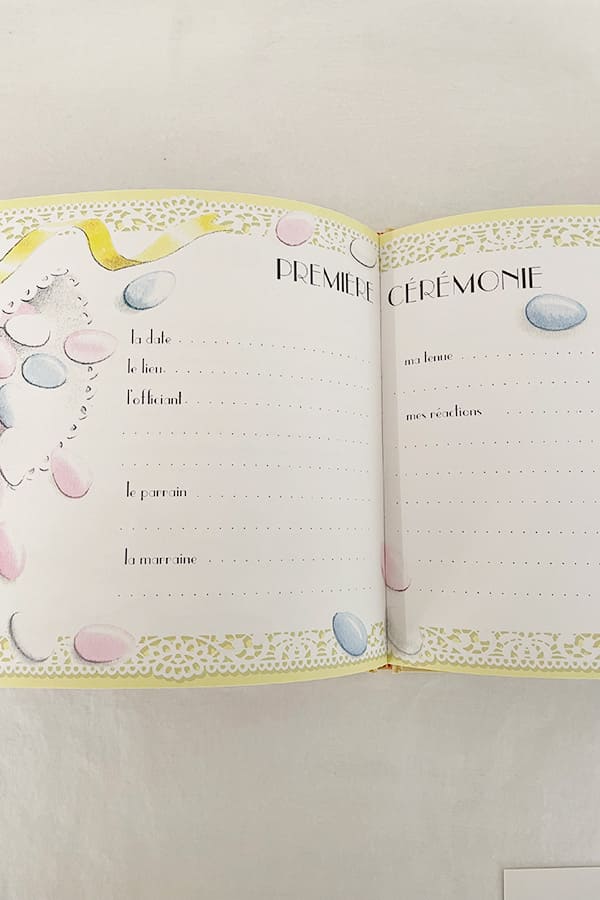 PREMIÈRE CÉRÉMONIE
la date
le lieu
l'officiant
le parrain
la marraine
ma tenue
mes réactions